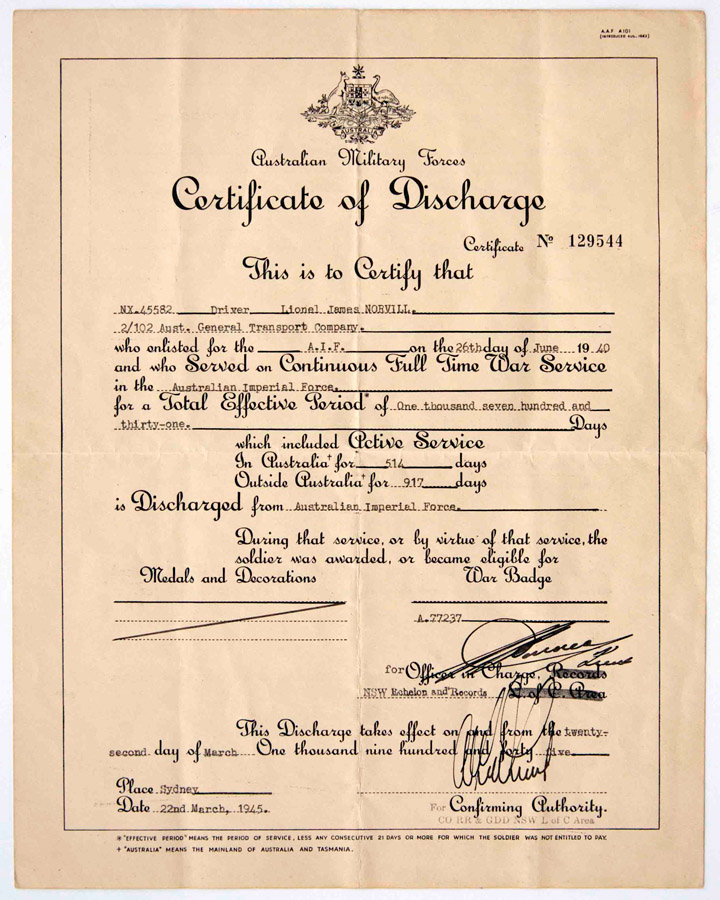 A.A.F. A101
(INTRODUCED AUG. 1942)
AUSTRALIA
Australian Military Forces
Certificate of Discharge
Certificate No 129544
This is to Certify that
NX.45582 Driver Lionel James NORVILL.
2/102 Aust. General Transport Company.
who enlisted for the A.I.F. on the 26th day of June 19 40
and who Served on Continuous Full Time War Service
in the Australian Imperial Force.
for a Total Effective Period* of One thousand seven hundred and
thirty-one. Days
which included Active Service
In Australia† for 514 days
Outside Australia† for 917 days
is Discharged from Australian Imperial Force.
During that service, or by virtue of that service, the
soldier was awarded, or became eligible for
Medals and Decorations War Badge
A.77237
for Officer in Charge, Records
NSW Echelon and Records L. of C. Area
This Discharge takes effect on and from the twenty-
second day of March One thousand nine hundred and forty five
Place Sydney
Date 22nd March, 1945.
For Confirming Authority.
CO RR & GDD NSW L of C Area
* "EFFECTIVE PERIOD" MEANS THE PERIOD OF SERVICE, LESS ANY CONSECUTIVE 21 DAYS OR MORE FOR WHICH THE SOLDIER WAS NOT ENTITLED TO PAY.
† "AUSTRALIA" MEANS THE MAINLAND OF AUSTRALIA AND TASMANIA.